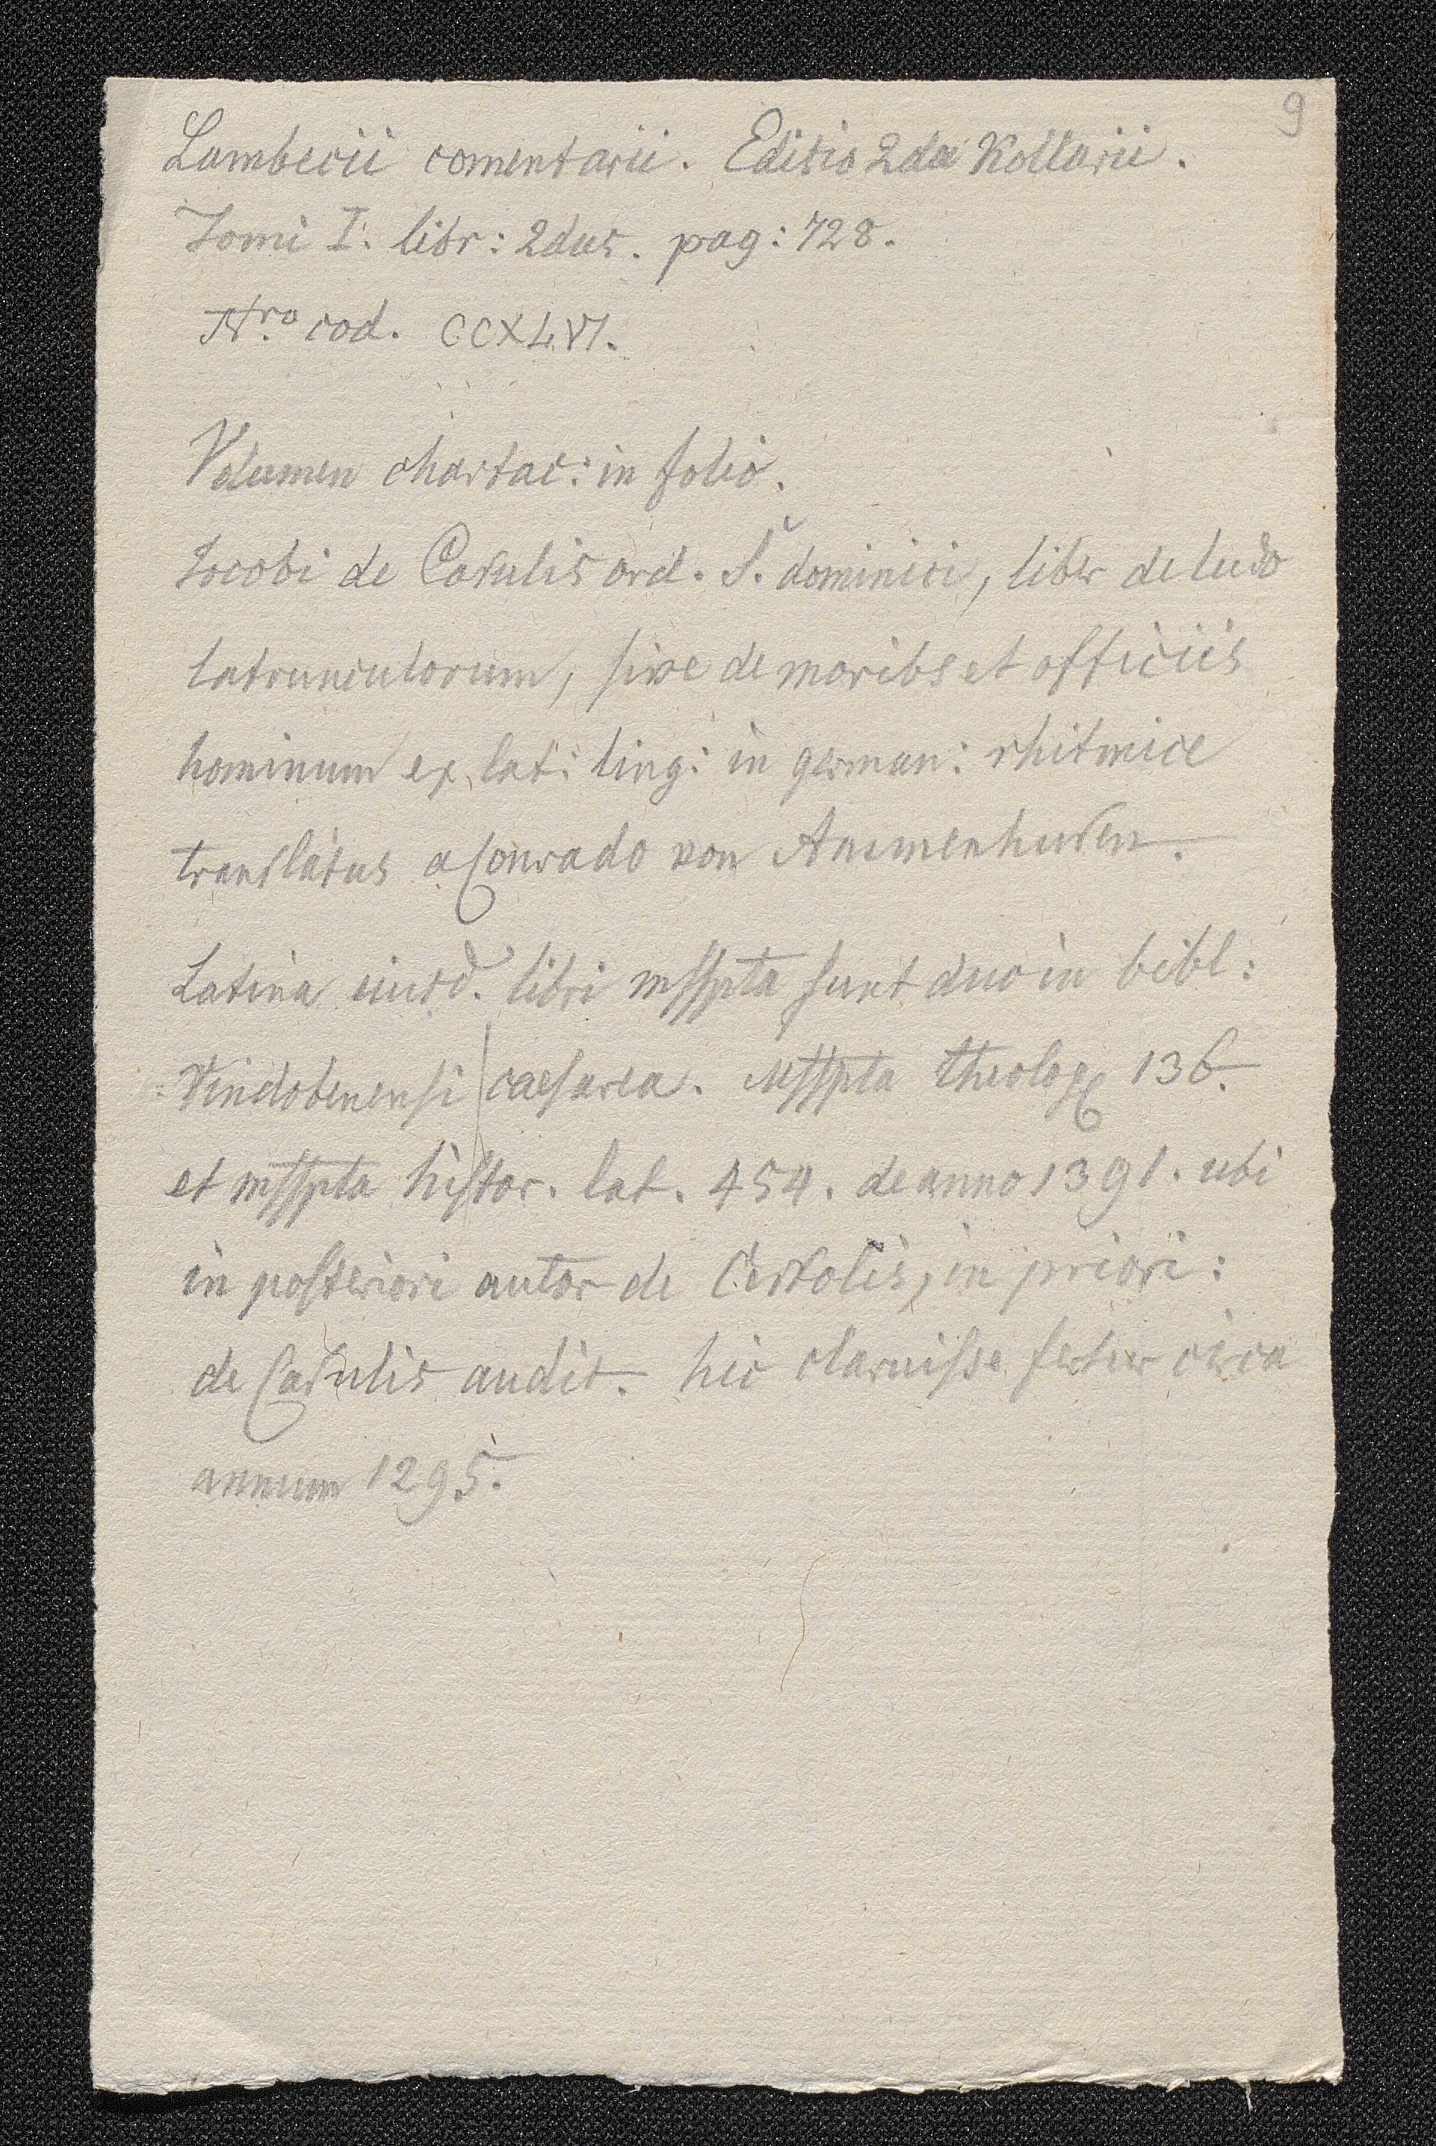 9
Lambecii comentarii. Editio 2da Kollarii.
Tomi I. libr: 2dus. pag: 728.
Nro cod. CCXLVI.
Volumen chartac: in folio.
Jocobi de Casulis ord. S. dominici, liber de ludo
latrunculorum, sive de moribs et officiis
hominum ex lat: ling: in german: rhitmice
translatus a Conrado von Ammenhusen.
Latina eiusd. libri msspta sunt duo in bibl:
Vindobenensi caesarea. Msspta theolog 136.
et msspta histor. lat. 454. de anno 1391. ubi
in posteriori autor de Certolis, in priori:
de Casulis audit. hic claruisse fertur circa
annum 1295.